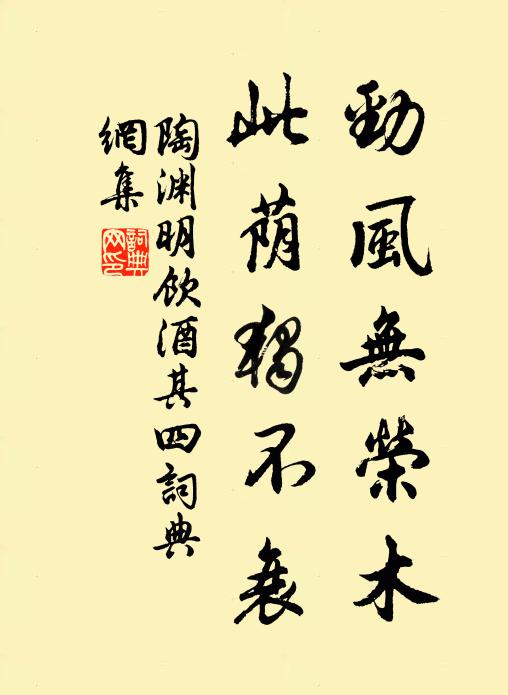 勁風無榮木
此蔭獨不衰
陶淵明飲酒其四詞典
網集
詞典
网印